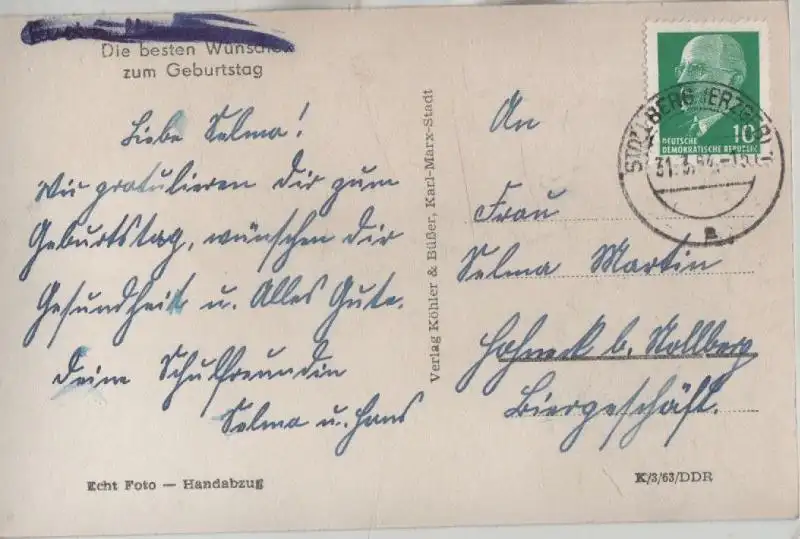 Die besten Wünsche
zum Geburtstag
Liebe Selma!
Wir gratulieren Dir zum
Geburtstag, wünschen Dir
Gesundheit u. Alles Gute.
Deine Schulfreundin
Selma u. Hans
Echt Foto — Handabzug
Verlag Köhler & Büßer, Karl-Marx-Stadt
10
DEUTSCHE
DEMOKRATISCHE REPUBLIK
STOLLBERG (ERZGEB)
31.3.64
a
An
Frau
Selma Martin
Hoheneck b. Stollberg
Biergeschäft.
K/3/63/DDR